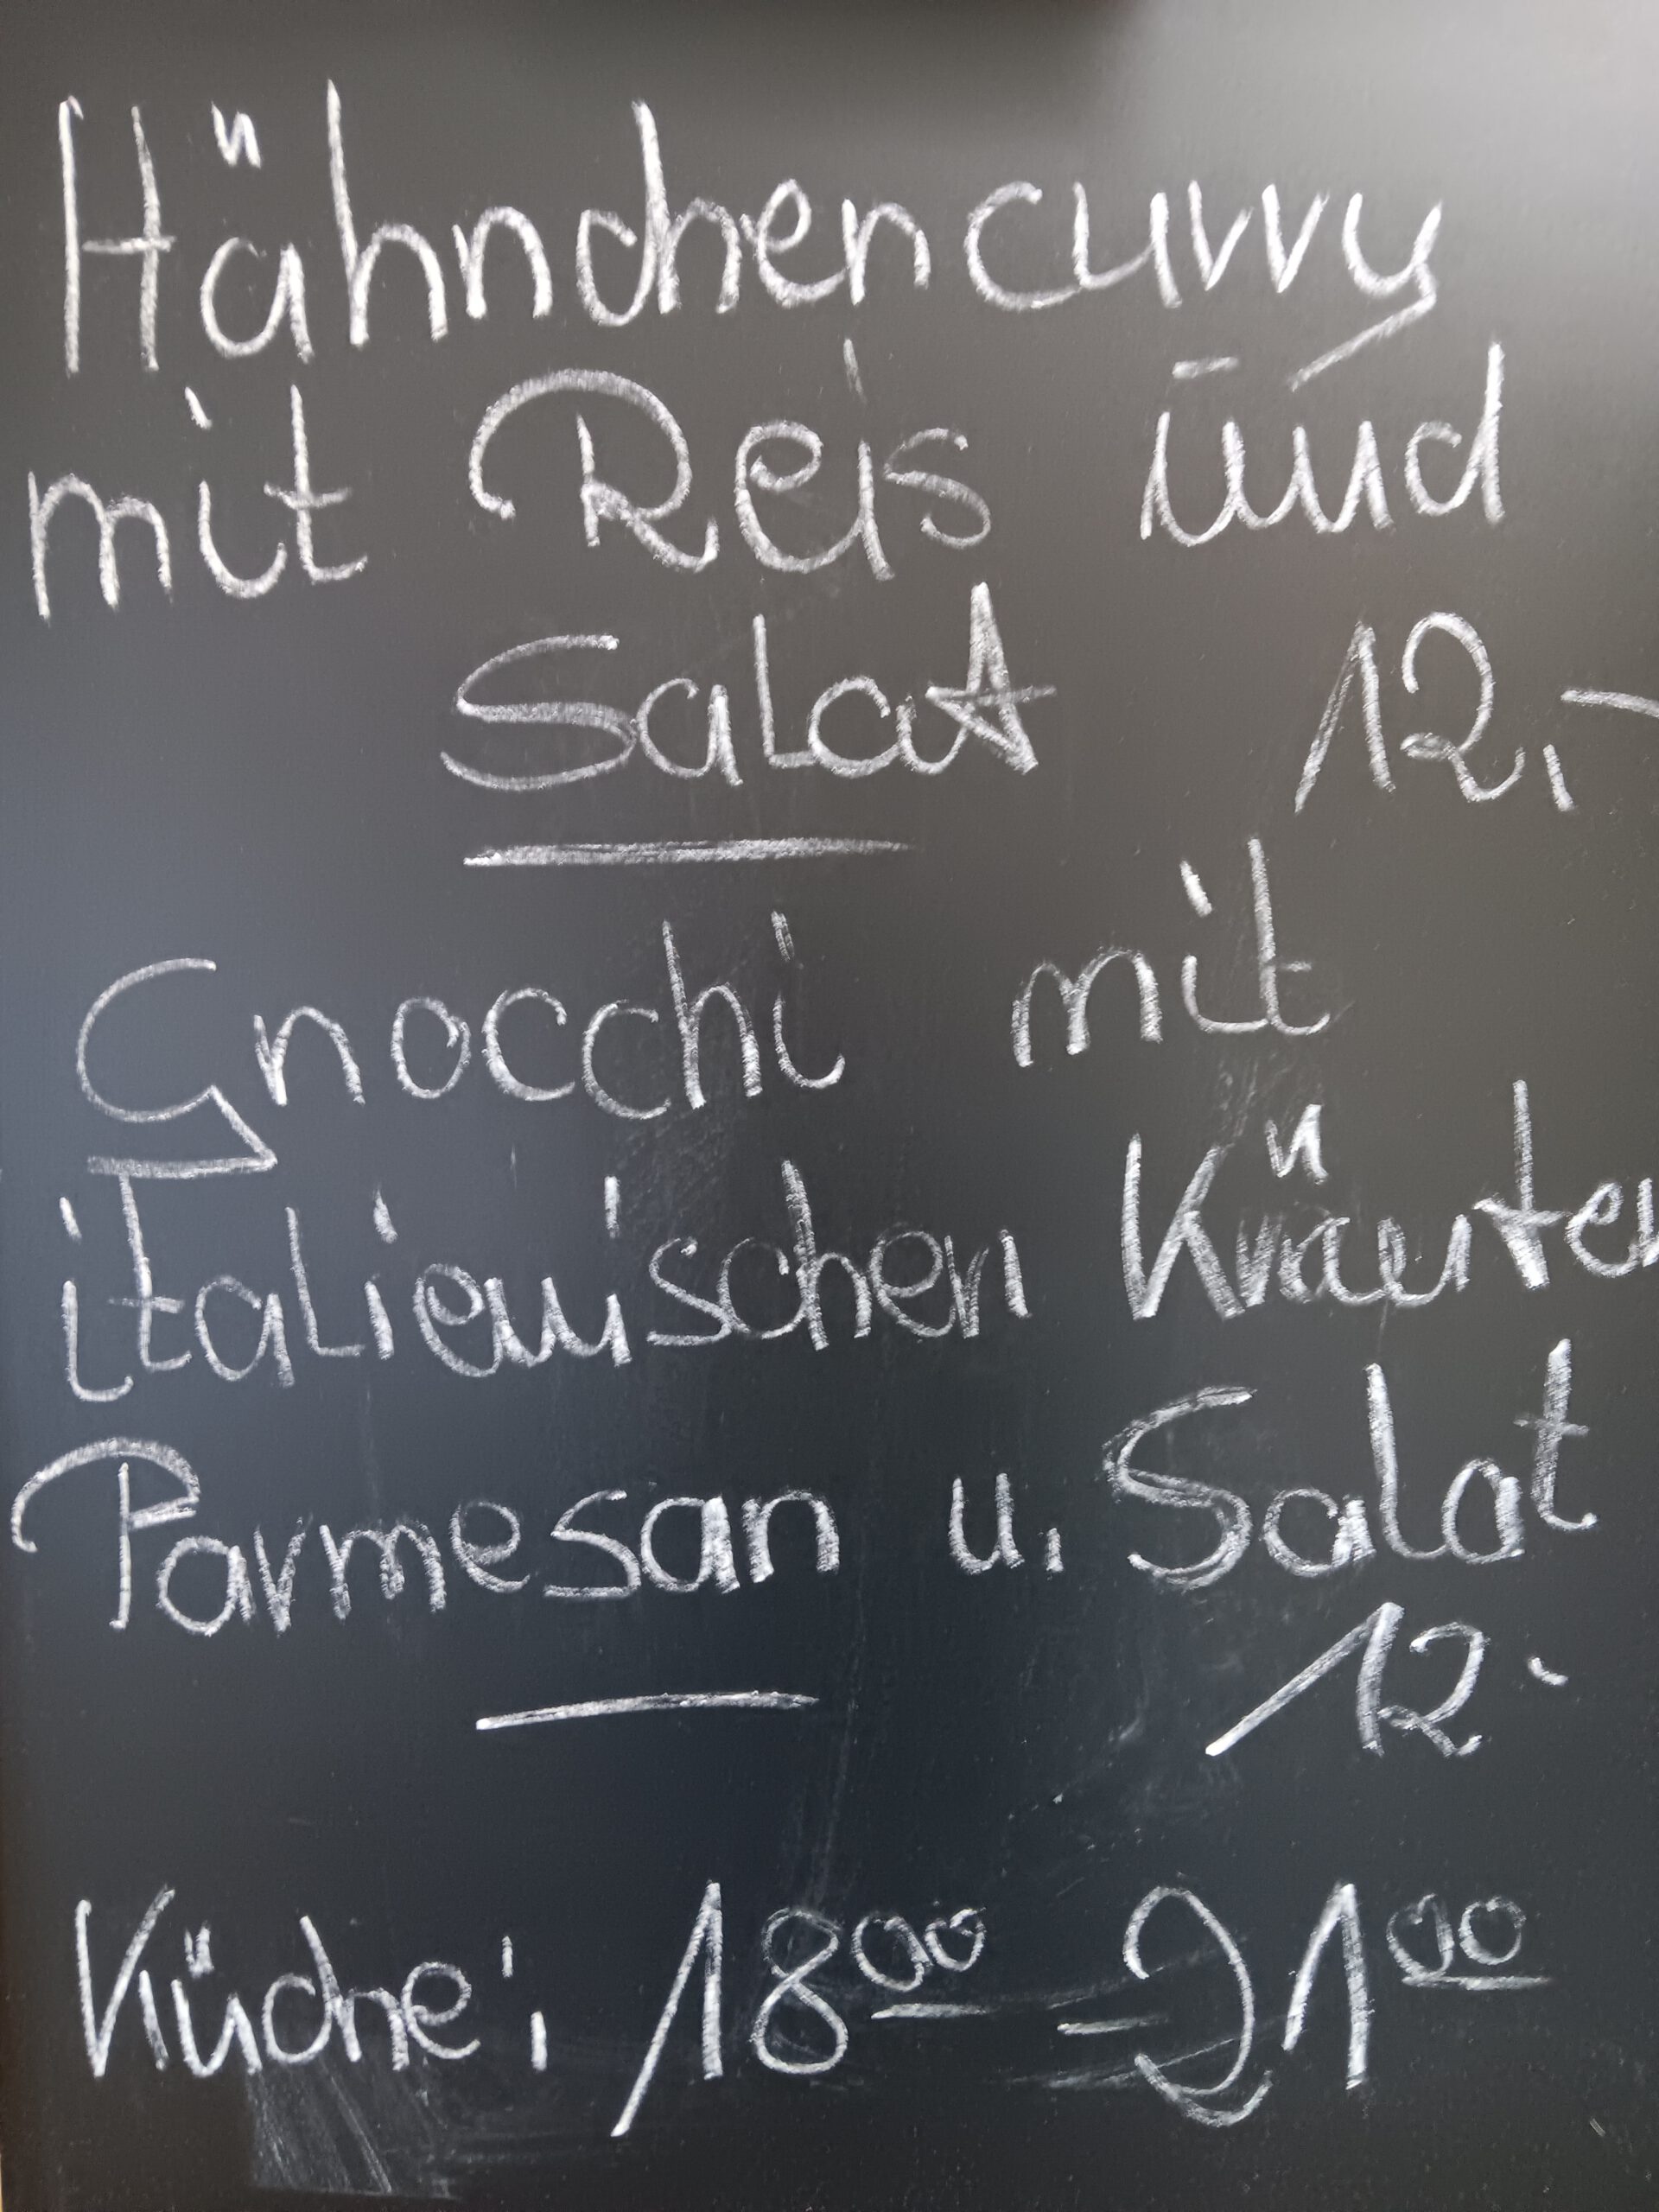 Hähnchencurry
mit Reis und
Salat 12,-
Gnocchi mit
italienischen Kräuter
Parmesan u. Salat
12.
Küche: 18⁰⁰ - 21⁰⁰